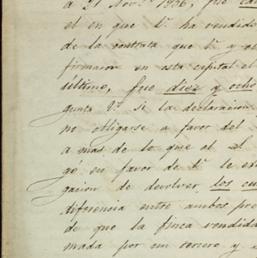 a 21 Novre 1836, fue
el en que Ud. ha vendido
de la contrata que Ud. y
firmaron en esta capital el
último, fue diez y ocho
gunta Ud. si la declaracion
no obligarse a favor del
a mas de lo que el
gó en favor de Ud. le
gacion de devolver, los
diferencia entre ambos pre
de que la finca vendida
mada por un tercero y